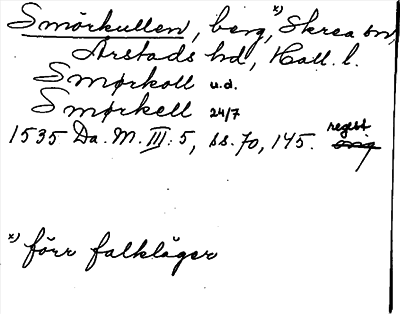 Smörkullen, berg,ˣ⁾ Skrea sn,
Årstads hd, Hall. l.
Smørkoll u.d.
Smørkell 24/7
1535 Da. M. III: 5, ss. 70, 145. regest orig
ˣ⁾ förr falkläger